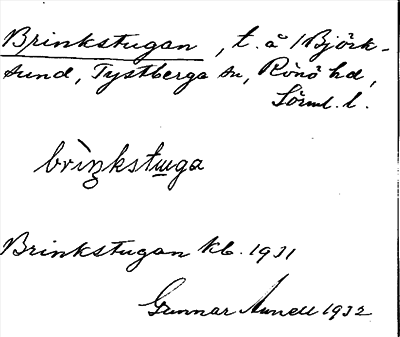 Brinkstugan, t. å 1 Björk-
sund, Tystberga sn, Rönö hd,
Sörml. l.
brìŋkstɯga
Brinkstugan kb. 1931
Gunnar 1932